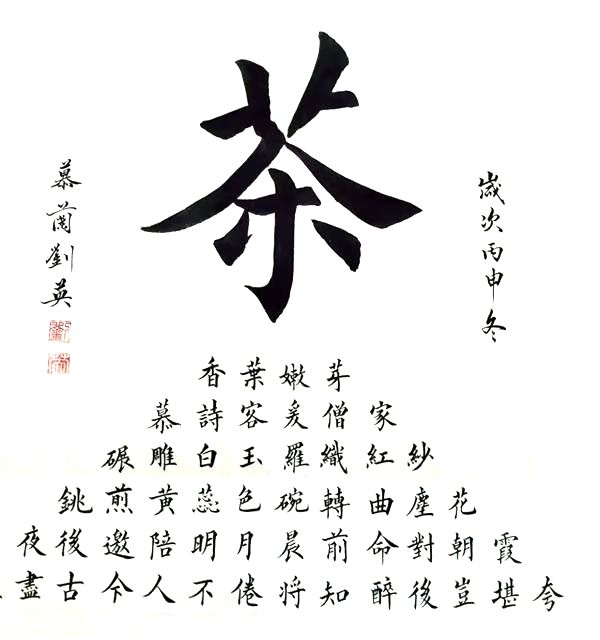 茶
香葉嫩芽
慕詩容爰僧家
碾雕白玉羅織紅紗
銚煎黃蕊色碗轉曲塵花
夜後邀陪明月晨前命對朝霞
盡古今人不倦將知醉後豈堪夸
歲次丙申冬
慕蘭劉英